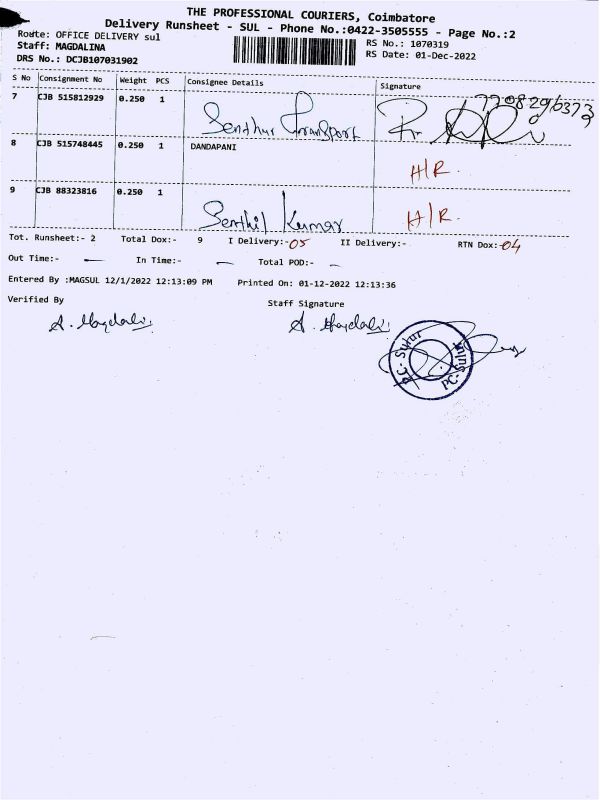 THE PROFESSIONAL COURIERS, Coimbatore
Delivery Runsheet - SUL - Phone No.:0422-3505555 - Page No.:2
Route: OFFICE DELIVERY sul
RS No.: 1070319
Staff: MAGDALINA
RS Date: 01-Dec-2022
DRS No.: DCJB107031902
S No Consignment No Weight PCS Consignee Details Signature
7 CJB 515812929 0.250 1 Senthur Transport
8 CJB 515748445 0.250 1 DANDAPANI H/R.
9 CJB 88323816 0.250 1 Senthil Kumar H/R.
Tot. Runsheet:- 2 Total Dox:- 9 I Delivery:-05 II Delivery:- RTN Dox:-04
Out Time:- — In Time:- — Total POD:- —
Entered By :MAGSUL 12/1/2022 12:13:09 PM Printed On: 01-12-2022 12:13:36
Verified By Staff Signature
PC- Sulur
PC- Sulur